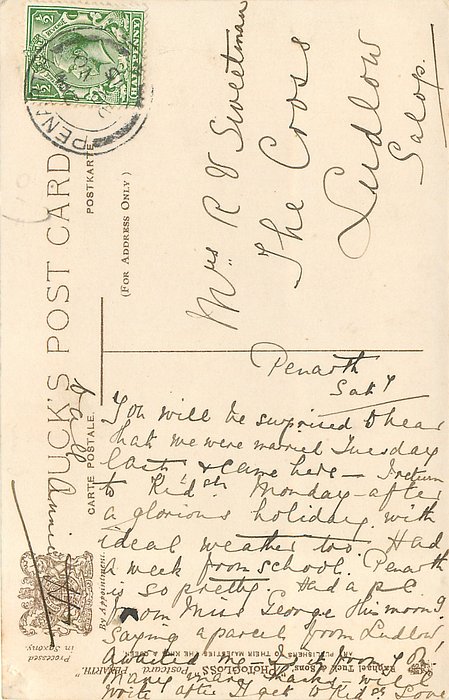 TUCK'S POST CARD
CARTE POSTALE.
POSTKARTE
(For Address Only)
HALFPENNY
PENA
Mrs R V Sweetman
The Cross
Ludlow
Salop.
Penarth
Saty
You will be surprised to hear
that we were married Tuesday
last & came here – I return
to Kid'str Monday – after
a glorious holiday with
ideal weather too. Had
a week from school. Penarth
is so pretty. Had a p.c
from Miss George this morng
saying a parcel from Ludlow
awaited me
Many many thanks – will
write after I get
Annie
Raphael Tuck & Sons
ART PUBLISHERS TO THEIR MAJESTIES THE KING & QUEEN
"PHOTOGLOSS" Postcard
PENARTH
By Appointment.
Processed in Saxony.